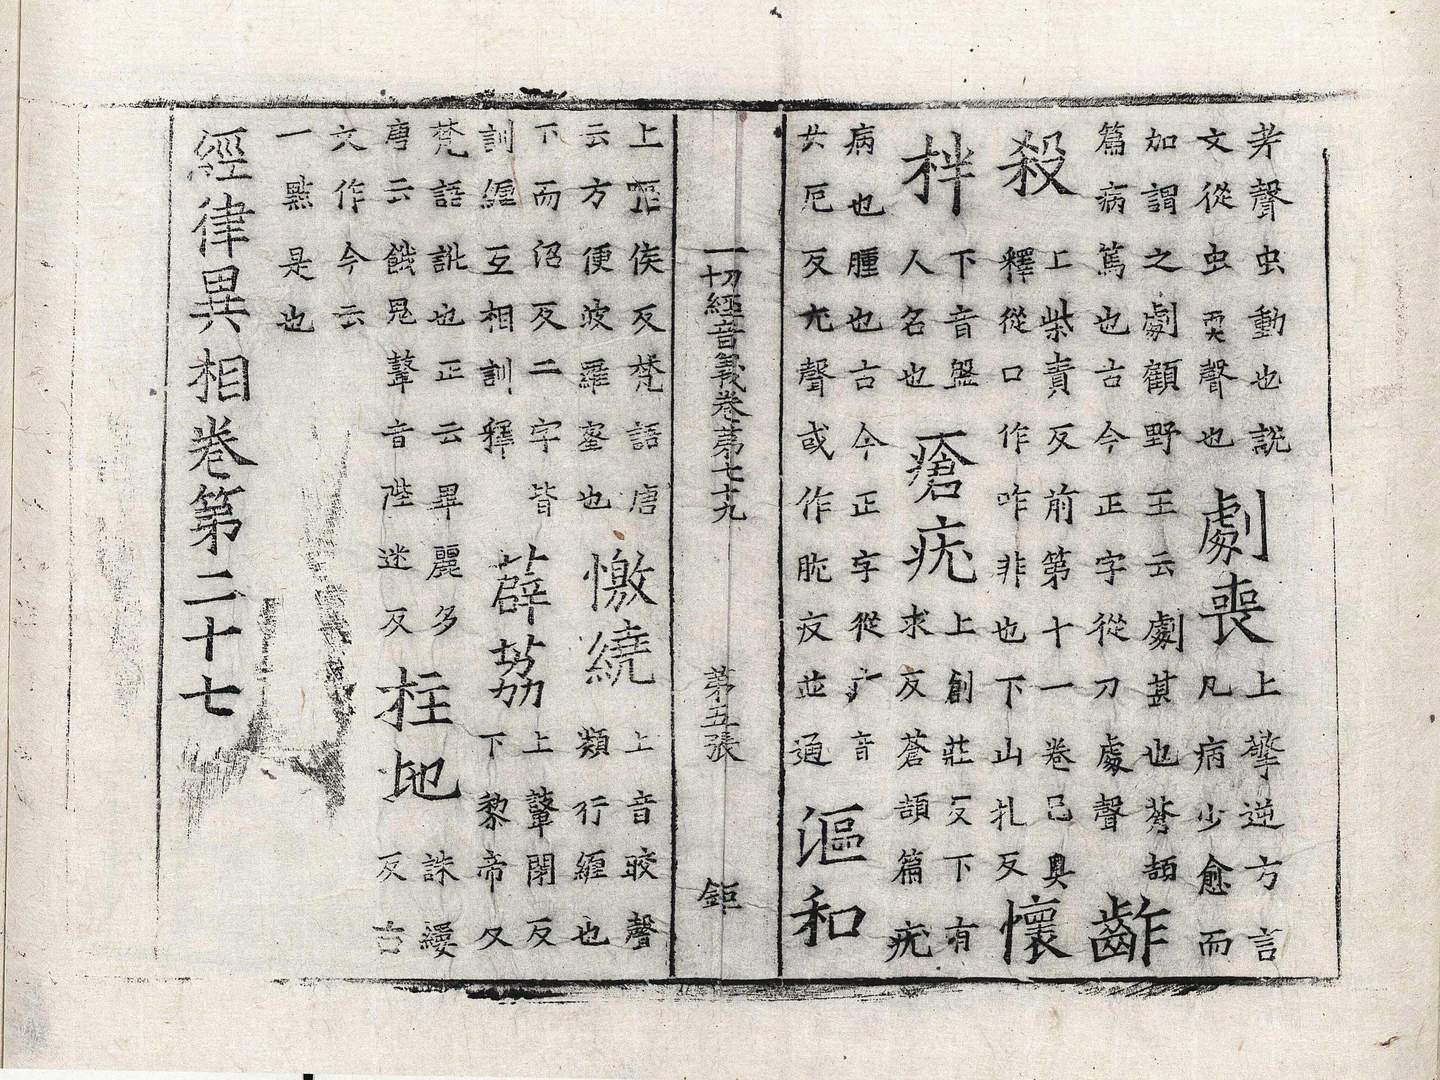 芳聲虫動也説文從虫耎聲也劇喪上擎逆方言凡病少愈而
加謂之劇顧野王云劇甚也蒼頡篇病篤也古今正字從刀豦聲齚
殺上柴責反前第十一卷已具釋從口作咋非也下山扎反懷
柈下音盤人名也瘡疣上創莊反下有求反蒼頡篇疣
病也腫也古今正字從疒音女厄反尤聲或作肬疫並通漚和
一切經音義卷第七十九 第五張 鉅
上謳侯反梵語唐云方便波羅蜜也憿繞上音皎聲類行纏也
下而沼反二字皆訓纏互相訓釋薜荔上鼙閉反下黎帝反
梵語訛也正云畢麗多唐云餓鬼鼙音陛迷反拄地誅縷反古
文作今云一點是也
經律異相卷第二十七